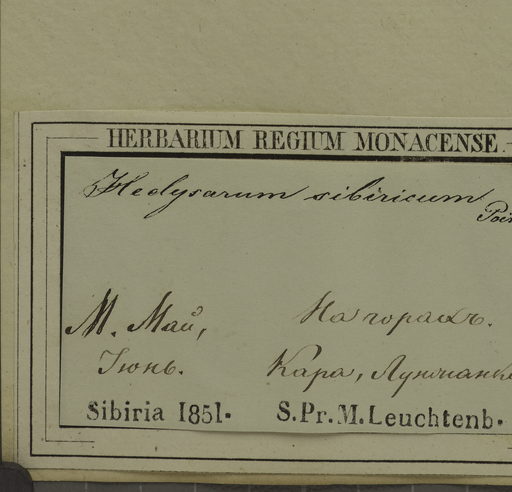 HERBARIUM REGIUM MONACENSE.
Hedysarum sibiricum
Poir
М. Май, На горахъ.
Іюнь. Кара,
Sibiria 1851. S.Pr.M.Leuchtenb.